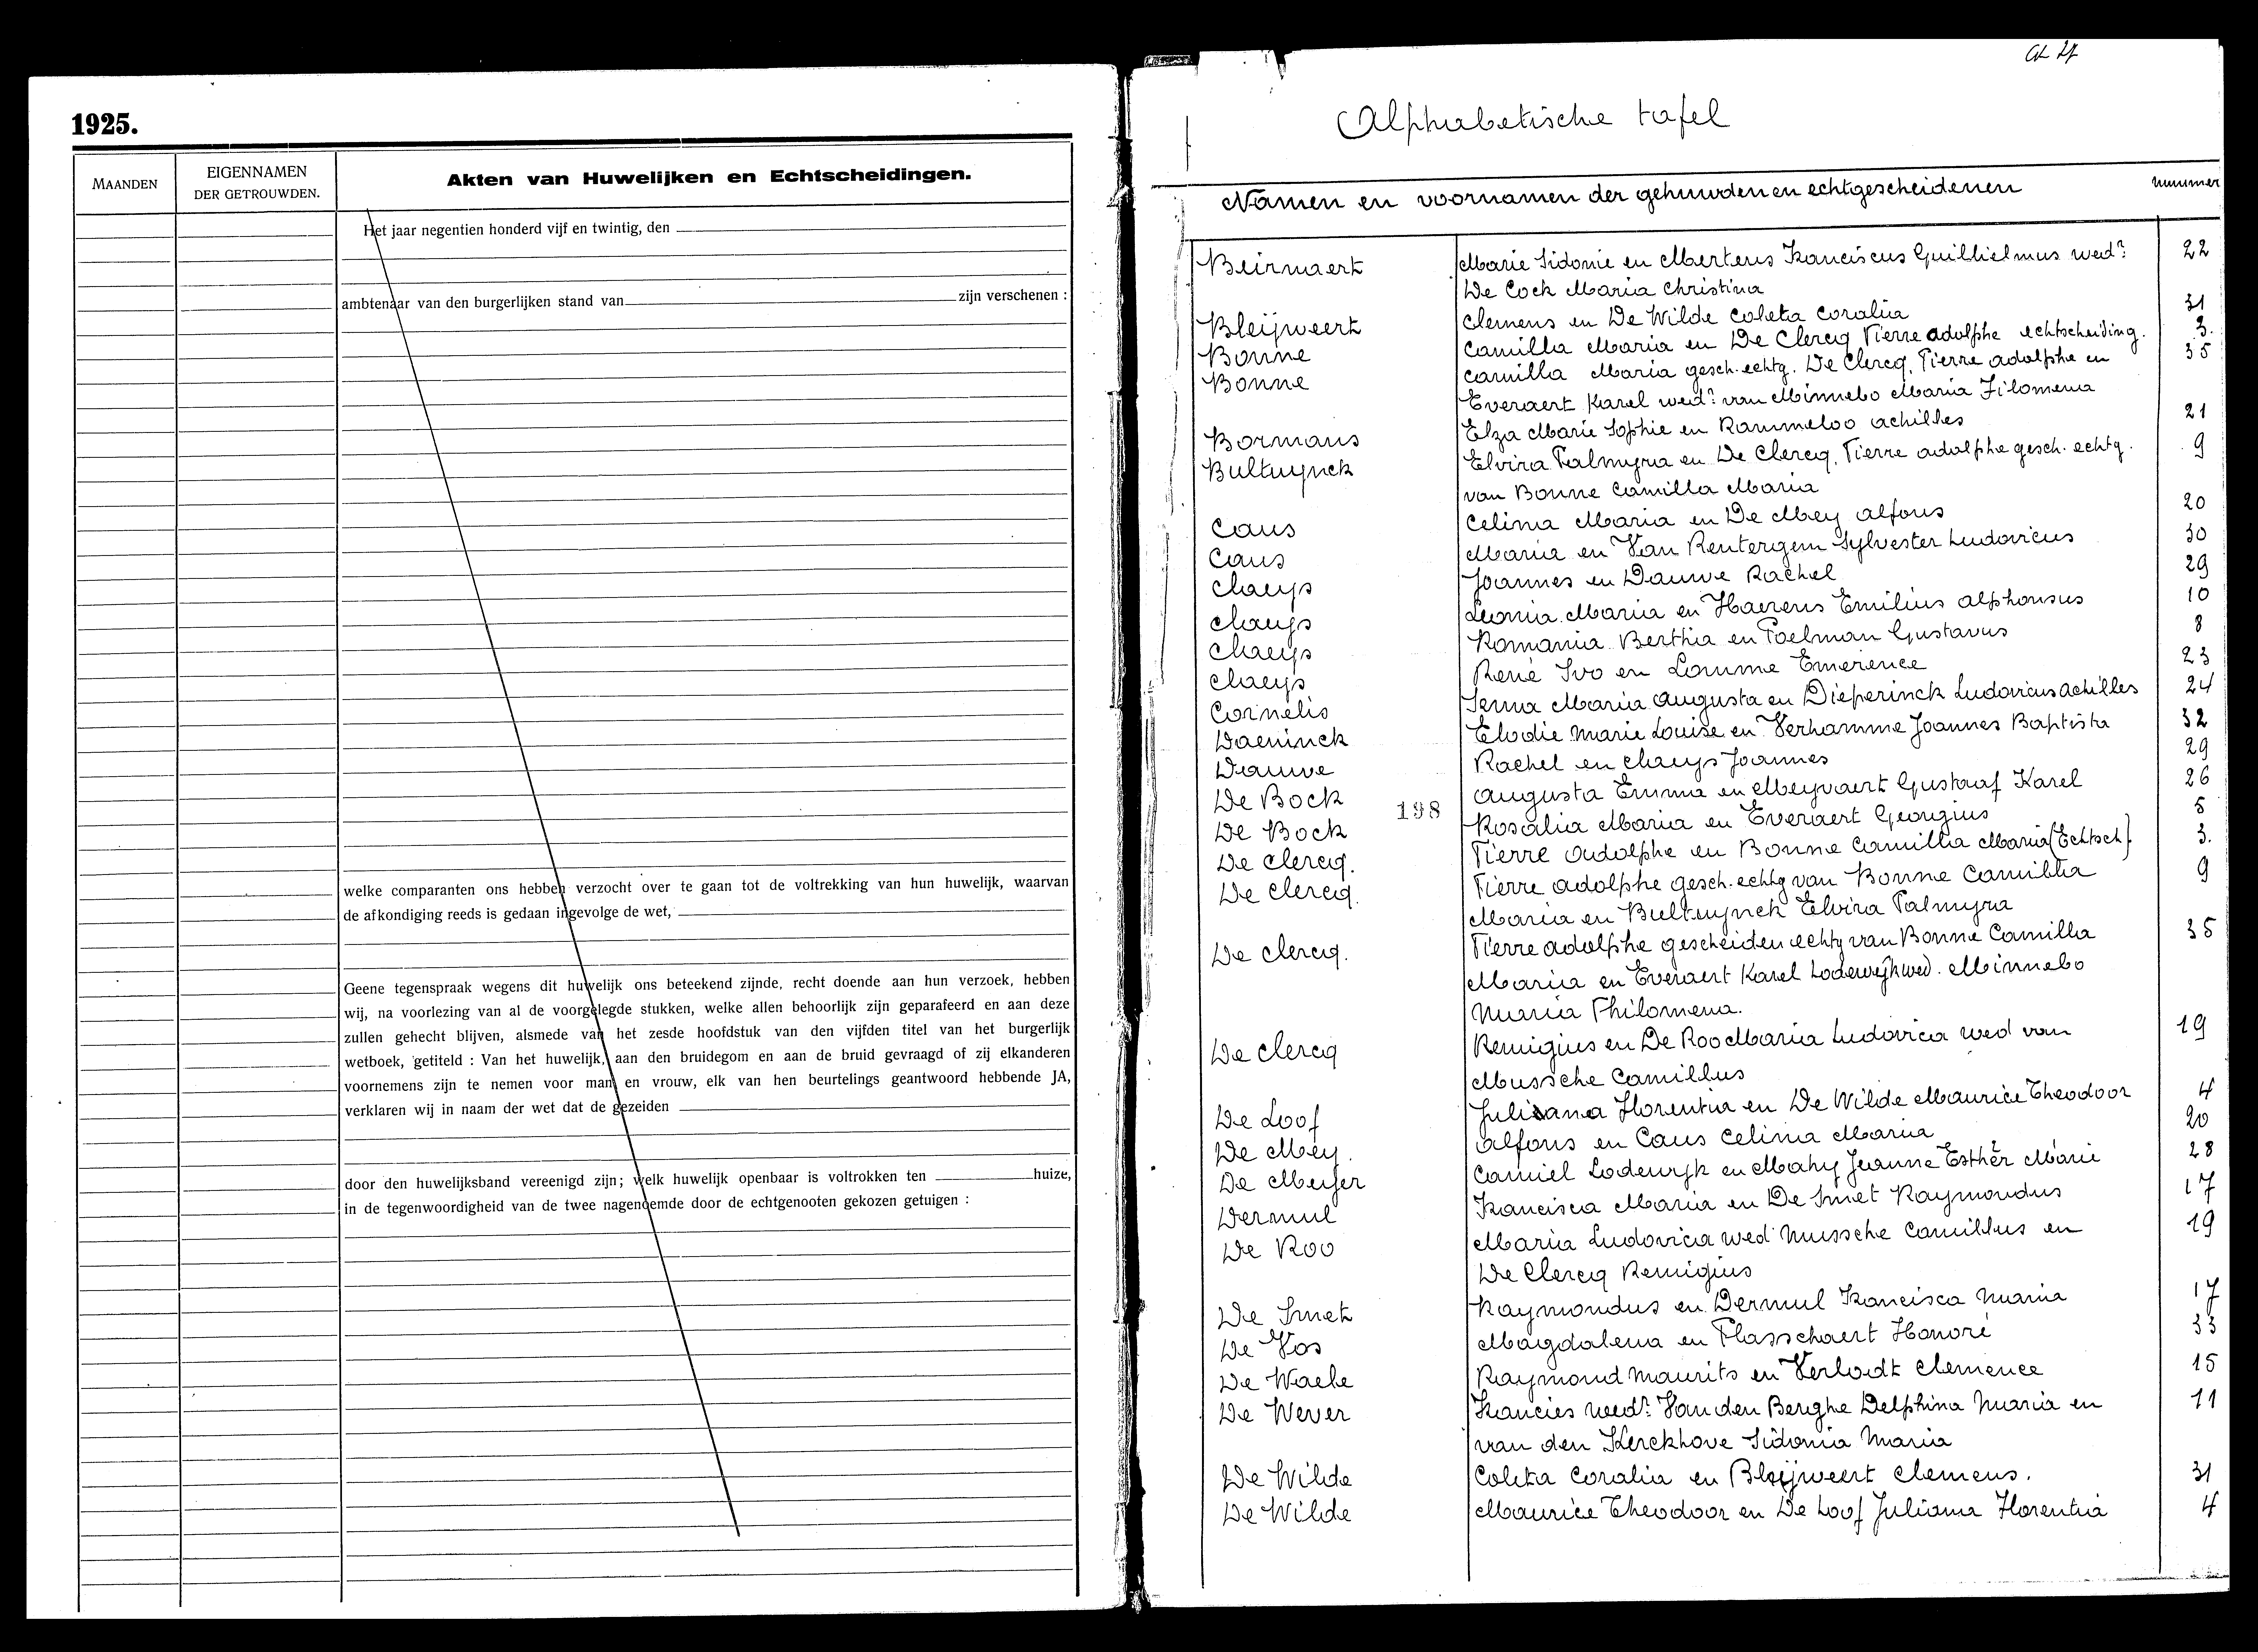 1925.
MAANDEN
EIGENNAMEN
DER GETROUWDEN.
Akten van Huwelijken en Echtscheidingen.
Het jaar negentien honderd vijf en twintig, den
ambtenaar van den burgerlijken stand van zijn verschenen :
welke comparanten ons hebben verzocht over te gaan tot de voltrekking van hun huwelijk, waarvan
de afkondiging reeds is gedaan ingevolge de wet,
Geene tegenspraak wegens dit huwelijk ons beteekend zijnde, recht doende aan hun verzoek, hebben
wij, na voorlezing van al de voorgelegde stukken, welke allen behoorlijk zijn geparafeerd en aan deze
zullen gehecht blijven, alsmede van het zesde hoofdstuk van den vijfden titel van het burgerlijk
wetboek, getiteld : Van het huwelijk, aan den bruidegom en aan de bruid gevraagd of zij elkanderen
voornemens zijn te nemen voor man en vrouw, elk van hen beurtelings geantwoord hebbende JA,
verklaren wij in naam der wet dat de gezeiden
door den huwelijksband vereenigd zijn; welk huwelijk openbaar is voltrokken ten huize,
in de tegenwoordigheid van de twee nagenoemde door de echtgenooten gekozen getuigen :
Alphabetische tafel
Namen en voornamen der gehuwden en echtgescheidenen nummer
Beirnaert Marie Sidonie en Mertens Franciscus Guillielmus wedr 22
De Cock Maria Christina
Bleijweert Clemens en De Wilde Coleta Coralia 31
Bonne Camilla Maria en De Clercq Pierre Adolphe echtscheiding. 3.
Bonne Camilla Maria gesch. echtg. De Clercq, Pierre Adolphe en 35
Everaert Karel wedr van Minnebo Maria Filomena
Bormans Elza Marie Sophie en Rammeloo Achilles 21
Bultuynck Elvira Palmyra en De Clercq, Pierre Adolphe gesch. echtg. 9
van Bonne Camilla Maria
Caus Celina Maria en De Mey Alfons 20
Caus Maria en Van Rentergem Sylvester Ludovicus 30
Claeys Joannes en Dauwe Rachel 29
Claeys Leonia Maria en Haerens Emilius Alphonsus 10
Claeys Romania Bertha en Poelman Gustavus 8
Claeys René Ivo en Lomme Emerence 23
Cornelis Irma Maria Augusta en Dieperinck Ludovicus Achilles 24
Daeninck Elodie Marie Louise en Verhamme Joannes Baptista 32
Dauwe Rachel en Claeys Joannes 29
De Bock Augusta Emma en Meyvaert Gustaaf Karel 26
198
De Bock Rosalia Maria en Everaert Georgius 5
De Clercq. Pierre Adolphe en Bonne Camilla Maria (Echtsch) 3.
De Clercq. Pierre Adolphe gesch. echtg van Bonne Camilla 9
Maria en Bultuynck Elvira Palmyra
De Clercq. Pierre Adolphe gescheiden echtg van Bonne Camilla 35
Maria en Everaert Karel Lodewijk wed. Minnebo
Maria Philomena.
De Clercq Remigius en De Roo Maria Ludovica wed van 19
Mussche Camillus
De Loof Juliana Florentia en De Wilde Maurice Theodoor 4
De Mey. Alfons en Caus Celina Maria 20
De Meyer Camiel Lodewyk en Mahy Jeanne Esther Marie 28
Dermul Francisca Maria en De Smet Raymondus 17
De Roo Maria Ludovica wed Mussche Camillus en 19
De Clercq Remigius
De Smet Raymondus en Dermul Francisca Maria 17
De Vos Magdalena en Plasschaert Honoré 33
De Waele Raymond Maurits en Verlodt Clemence 15
De Wever Francies wedr Van den Berghe Delphina Maria en 11
van den Kerckhove Sidonia Maria
De Wilde Coleta Coralia en Bleijweert Clemens. 31
De Wilde Maurice Theodoor en De Loof Juliana Florentia 4